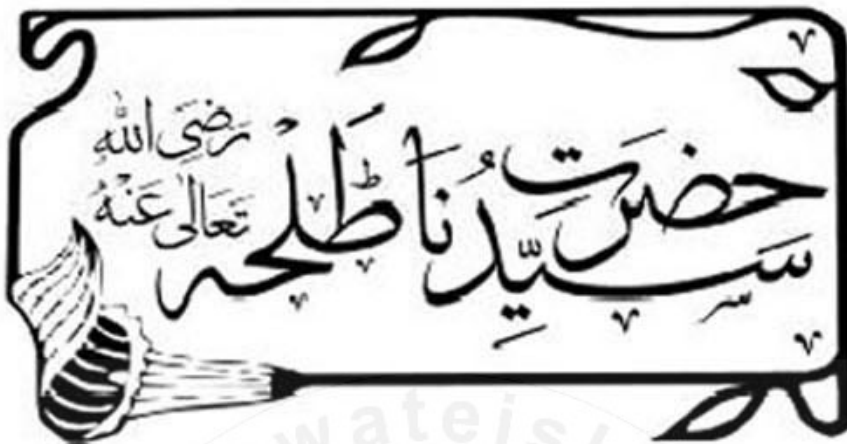 حضرت سَیِّدُنا طَلْحہ رَضِیَ اللہُ تَعَالٰی عَنْہُ